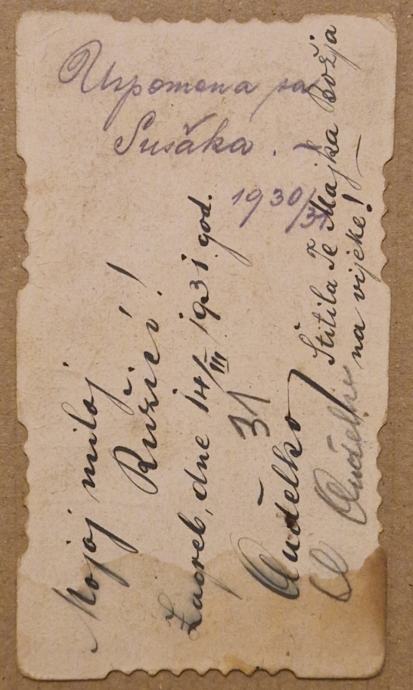 Uspomena sa
Sušaka. -
1930/31
Mojoj miloj
Ružici!
Zagreb, dne 14/III 1931 god.
31
Anđelko
Štitila Te Majka Božja
na vijeke!
Anđelko